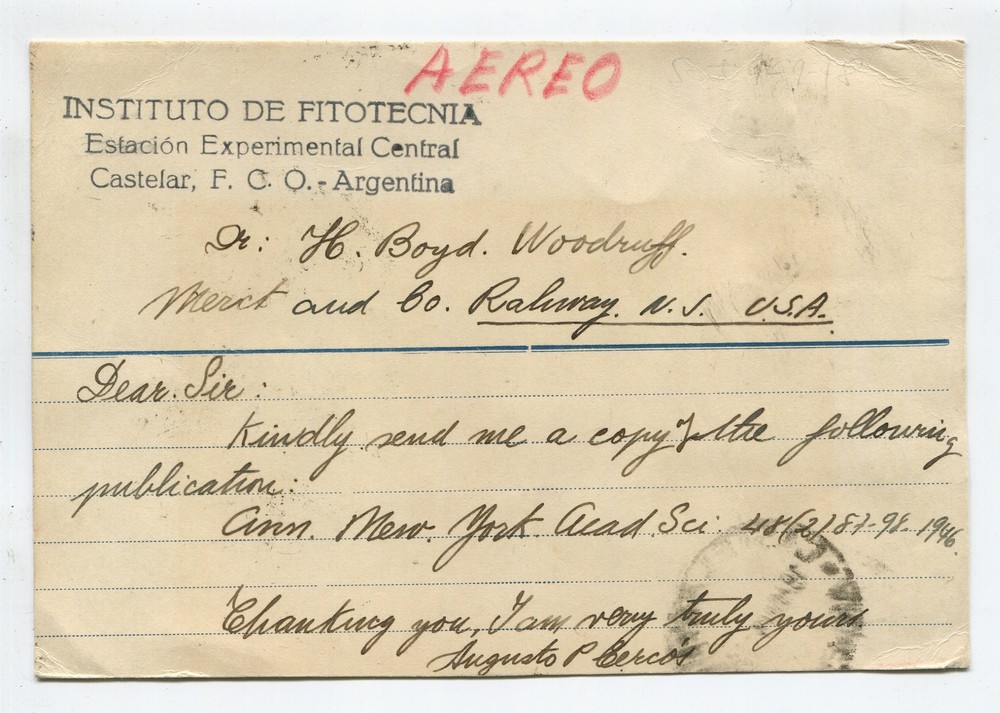 AEREO
INSTITUTO DE FITOTECNIA
Estación Experimental Central
Castelar, F. C. O. - Argentina
Dr: H. Boyd. Woodruff.
Merct and Co. Rahway. N. J. U.S.A.
Dear. Sir:
Kindly send me a copy of the following
publication:
Ann. New. York. Acad. Sci. 48(2) 87-98. 1946.
Thanking you, I am very truly yours
Augusto P Cercós